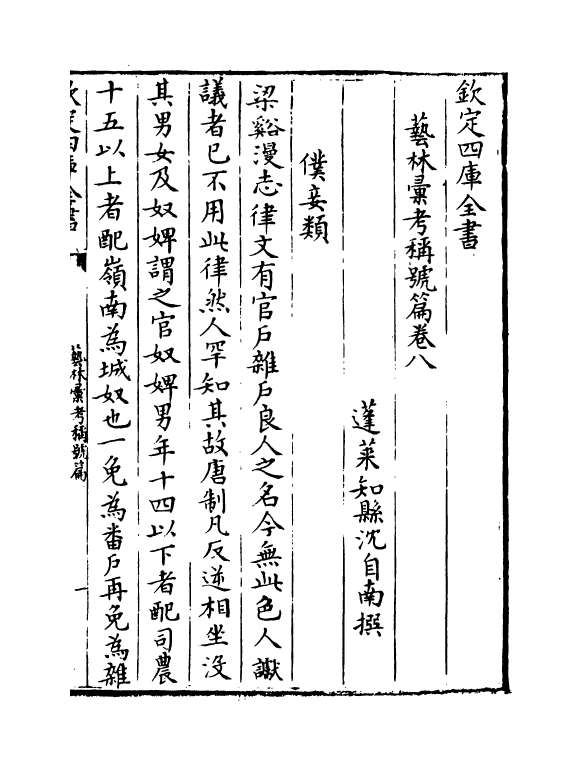 欽定四庫全書
藝林彙考稱號篇卷八
蓬萊知縣沈自南撰
僕妾類
梁谿漫志律文有官戶雜戶良人之名今無此色人讞
議者已不用此律然人罕知其故唐制凡反逆相坐沒
其男女及奴婢謂之官奴婢男年十四以下者配司農
十五以上者配嶺南為城奴也一免為畨戶再免為雜
欽定四庫全書
藝林彙考稱號篇
一